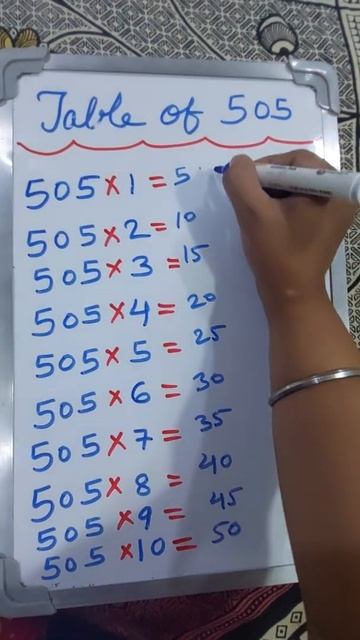 Table of 505
505×1=5
505×2=10
505×3=15
505×4=20
505×5=25
505×6=30
505×7=35
505×8=40
505×9=45
505×10=50